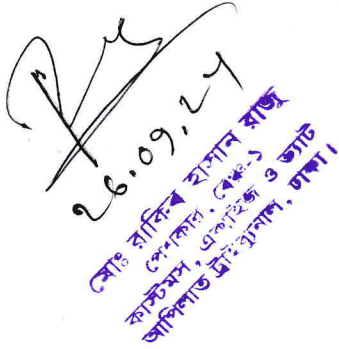 26.09.24
মোঃ রাকিব হাসান রাজু
পেশকার, বেঞ্চ-১
কাস্টমস, এক্সাইজ ও ভ্যাট
আপিলাত ট্রাইব্যুনাল, ঢাকা।